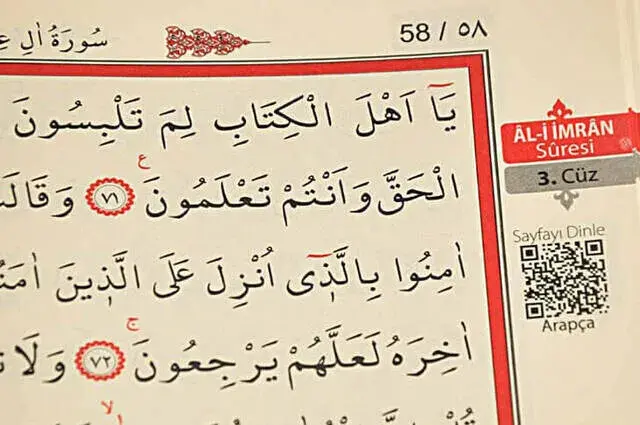 سُورَةُ اٰلِ
58 / ٥٨
يَٓا اَهْلَ الْكِتَابِ لِمَ تَلْبِسُونَ
الْحَقَّ وَاَنْتُمْ تَعْلَمُونَ ۟ع ﴿٧١﴾ وَقَالَتْ
اٰمِنُوا بِالَّذ۪ٓي اُنْزِلَ عَلَى الَّذ۪ينَ
اٰخِرَهُ لَعَلَّهُمْ يَرْجِعُونَ ج ﴿٧٢﴾ وَلَا
ÂL-İ İMRÂN
Sûresi
3. Cüz
Sayfayı Dinle
Arapça